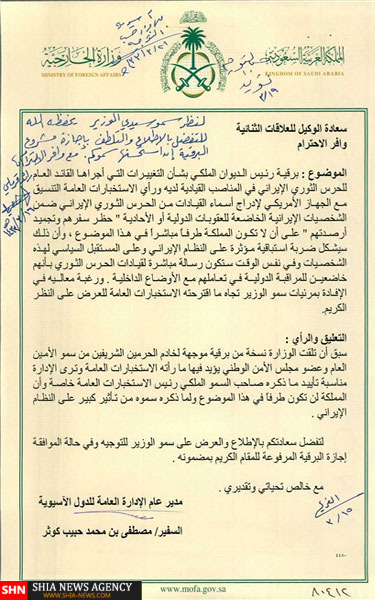 المملكة العربية السعودية
KINGDOM OF SAUDI ARABIA
وزارة الخارجية
MINISTRY OF FOREIGN AFFAIRS
لنظر سمو سيدي الوزير يحفظه الله
للتفضل بالاطلاع والتلطف بإجازة مشروع
البرقية إذا استحسن سموكم. مع وافر
سعادة الوكيل للعلاقات الثنائية
وافر الاحترام
الموضوع : برقية رئيس الديوان الملكي بشأن التغييرات التي أجراها القائد العام
للحرس الثوري الإيراني في المناصب القيادية لديه ورأي الاستخبارات العامة التنسيق
مع الجهاز الأمريكي لإدراج أسماء القيادات من الحرس الثوري الإيراني ضمن
الشخصيات الإيرانية الخاضعة للعقوبات الدولية أو الأحادية " حظر سفرهم وتجميد
أرصدتهم " على أن لا تكون المملكة طرفاً مباشراً في هذا الموضوع ، وأن ذلك
سيشكل ضربة استباقية مؤثرة على النظام الإيراني وعلى المستقبل السياسي لهذه
الشخصيات وفي نفس الوقت ستكون رسالة مباشرة لقيادات الحرس الثوري بأنهم
خاضعين للمراقبة الدولية في تعاملهم مع الأوضاع الداخلية . ورغبة معاليه في
الإفادة بمرئيات سمو الوزير تجاه ما اقترحته الاستخبارات العامة للعرض على النظر
الكريم.
التعليق والرأي :
سبق أن تلقت الوزارة نسخة من برقية موجهة لخادم الحرمين الشريفين من سمو الأمين
العام وعضو مجلس الأمن الوطني يؤيد فيها ما رأته الاستخبارات العامة وترى الإدارة
مناسبة تأييد ما ذكره صاحب السمو الملكي رئيس الاستخبارات العامة خاصة وأن
المملكة لن تكون طرفاً في هذا الموضوع ولما ذكره سموه من تأثير كبير على النظام
الإيراني .
لتفضل سعادتكم بالإطلاع والعرض على سمو الوزير للتوجيه وفي حالة الموافقة
إجازة البرقية المرفوعة للمقام الكريم بمضمونه .
مع خالص تحياتي وتقديري .
مدير عام الإدارة العامة للدول الآسيوية
السفير/ مصطفى بن محمد حبيب كوثر
٣/١٥
٤٤٨٠
www.mofa.gov.sa
SHN SHIA NEWS AGENCY
WWW.SHIA-NEWS.COM